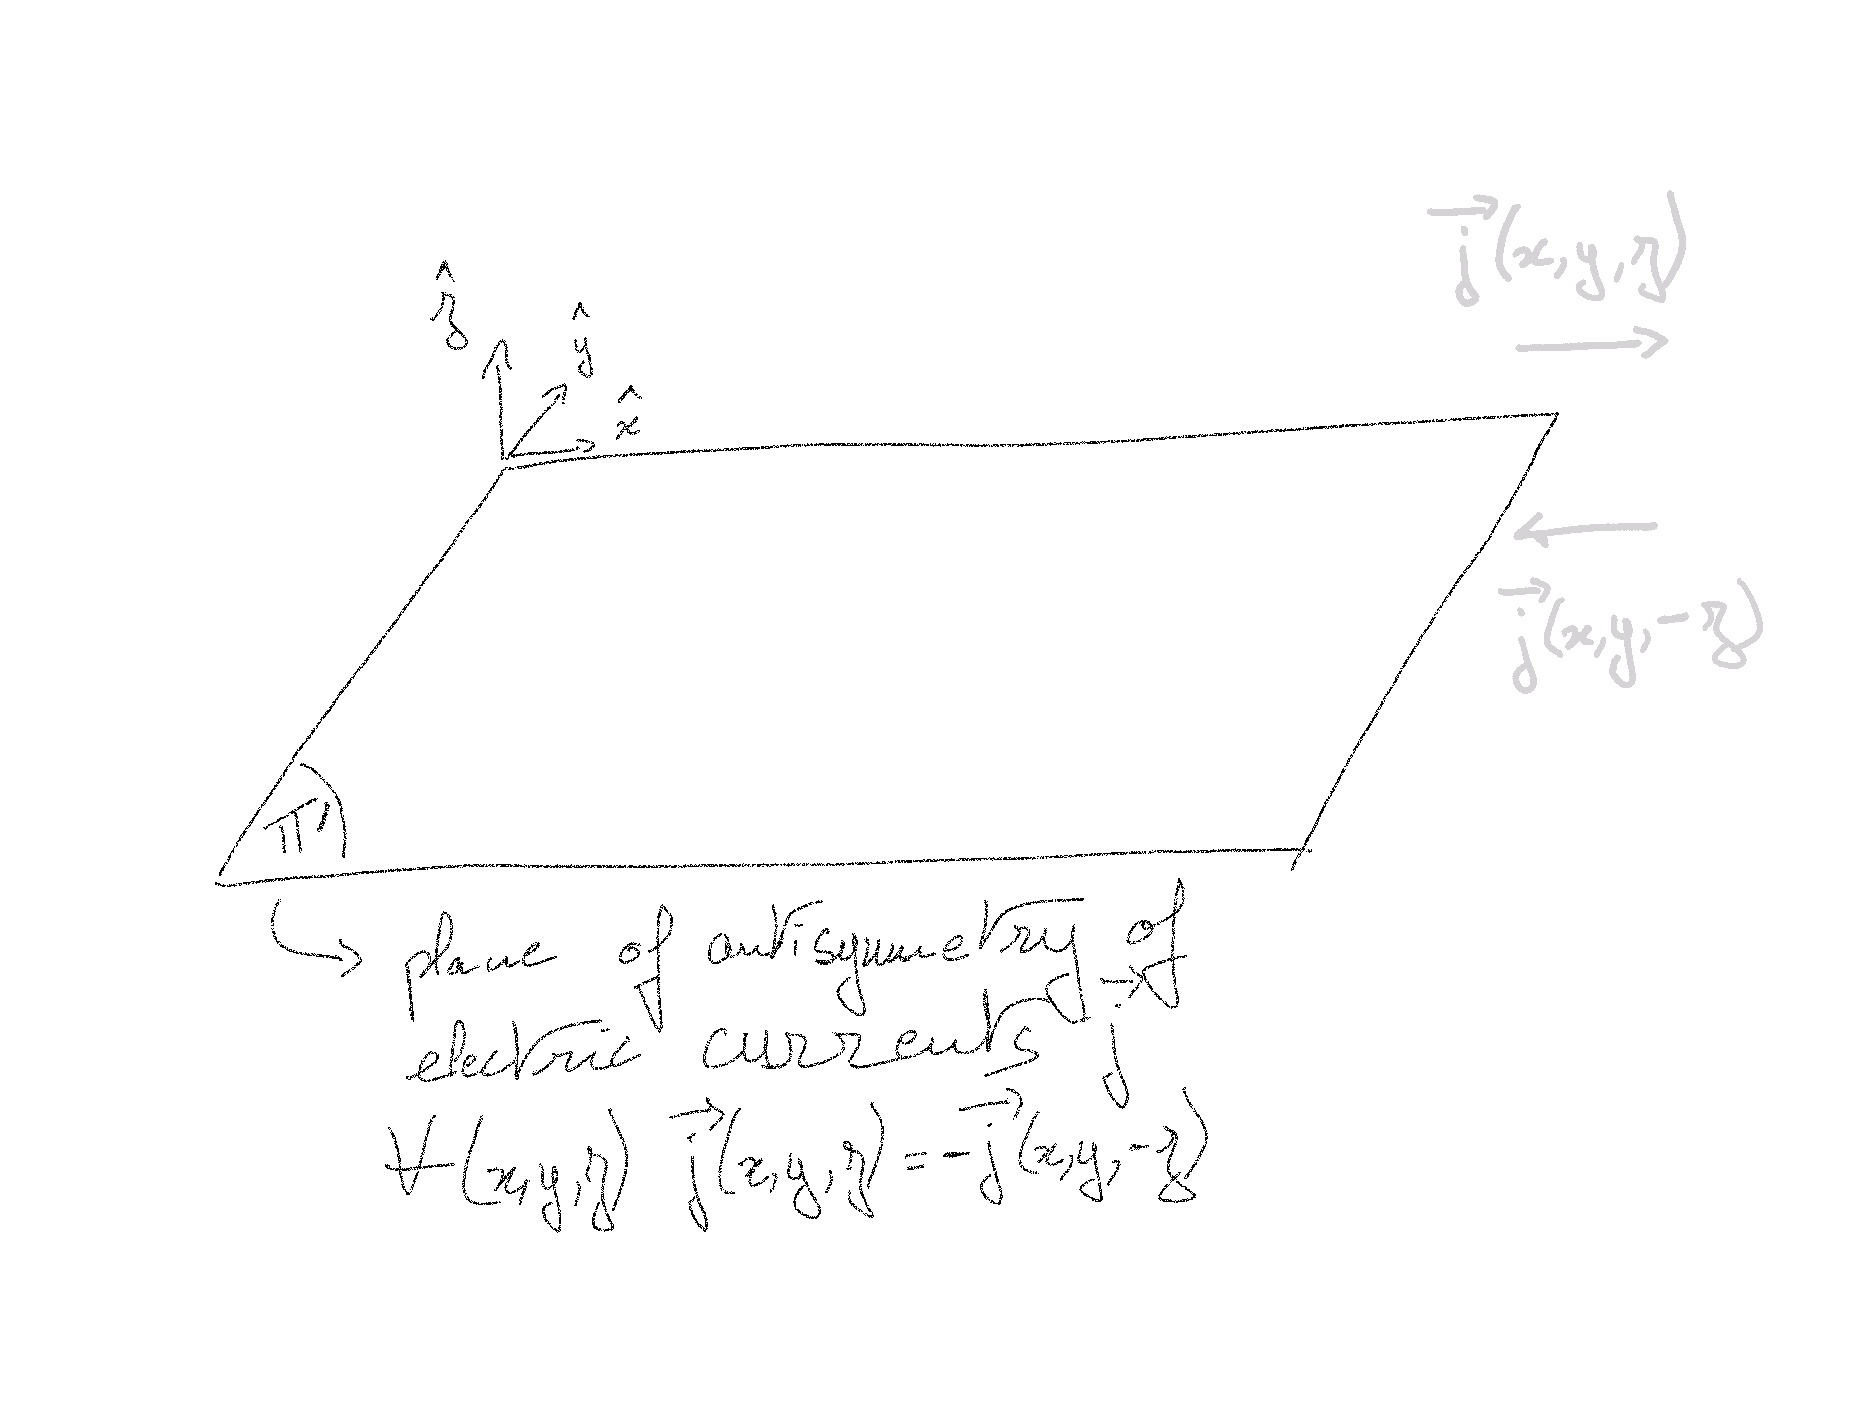 $\vec{j}(x,y,z)$
$\hat{z}$
$\hat{y}$
$\hat{x}$
$\vec{j}(x,y,-z)$
Π'
plane of antisymmetry of
electric currents $\vec{j}$
$\forall (x,y,z) \; \vec{j}(x,y,z) = -\vec{j}(x,y,-z)$